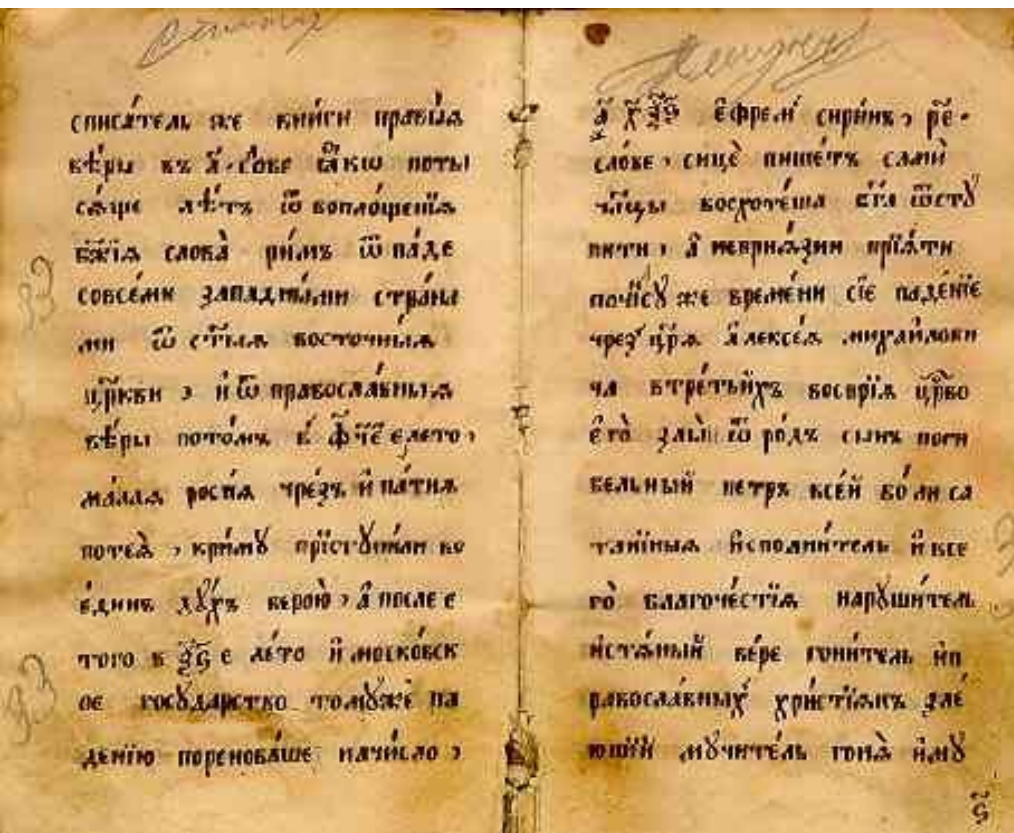 списа́тель же кни́ги пра́выя
вѣ́ры въ л҃. сло́ве ꙗ҆́кѡ поты
сѧщи лѣ́тъ ѿ воплоще́нїѧ
бж҃їѧ сло́ва ри́мъ ѿпаде
совсе́ми за́падными страна
ми ѿ ст҃ыѧ восточныѧ
цр҃кви, и ѿ правосла́вныѧ
вѣ́ры пото́мъ в҃ ҂аф҃ч҃е е лето,
ма́лаѧ росиѧ чре́зъ и҆па́тиѧ
потеѧ̀, кри́мꙋ пристꙋпи́ли во
еди́нъ дꙋ́хъ верою, а҆ после е
того в ҂а҃х҃ѯ҃ѕ҃ е ле́то и московск
ое госꙋда́рство томꙋже па
де́нїю пореновáше на число,
х҃ѯ҃ѕ҃ е҆фре́м сири́нъ, р҃е.
сло́ве, сицѐ пи́шетъ самй
чл҃цы восхоте́ша бг҃а ѿстꙋ
пити, а҆ неприѧ́зни прїѧ́ти
по числꙋ же вре́мени сїе паде́нїе
чрез̾ цр҃ѧ а҆лексе́ѧ миха́йлови
ча втре́тьйхъ воспрїѧ цр҃тво
е҆го̀ злы́й ѿрод̾ сынъ поги
бельный петръ все́й во́ли са
танїиныѧ и҆сполни́тель и҆ все
го̀ благоче́стїѧ нарꙋши́тель
и҆стинный ве́ре гони́тель и҆п
равосла́вных̾ христїѧ́нъ зле́
юший мꙋчите́ль гонѧ̀ и҆мꙋ
ѕ҃